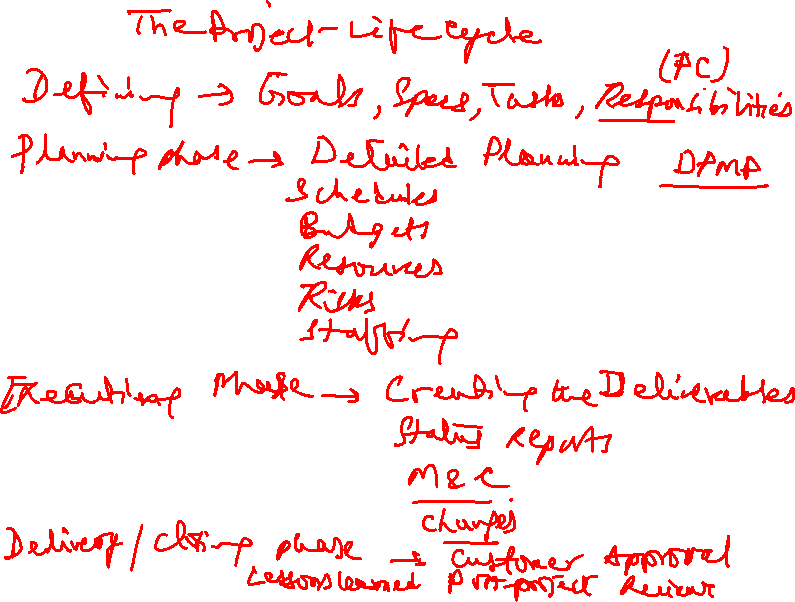 The Project-Lifecycle
(PC)
Defining → Goals, Specs, Tasks, Responsibilities
Planning phase → Detailed Planning DPMP
Schedules
Budgets
Resources
Risks
Staffing
Executing Phase → Creating the Deliverables
Status Reports
M & C
Changes
Delivery / closing phase → Customer Approval
Lessons learned Post-project Review